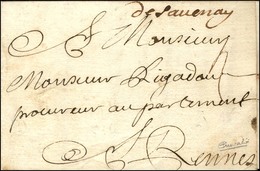 de Savenay
A Monsieur
Monsieur Rigadou
procureur au partement
A Rennes